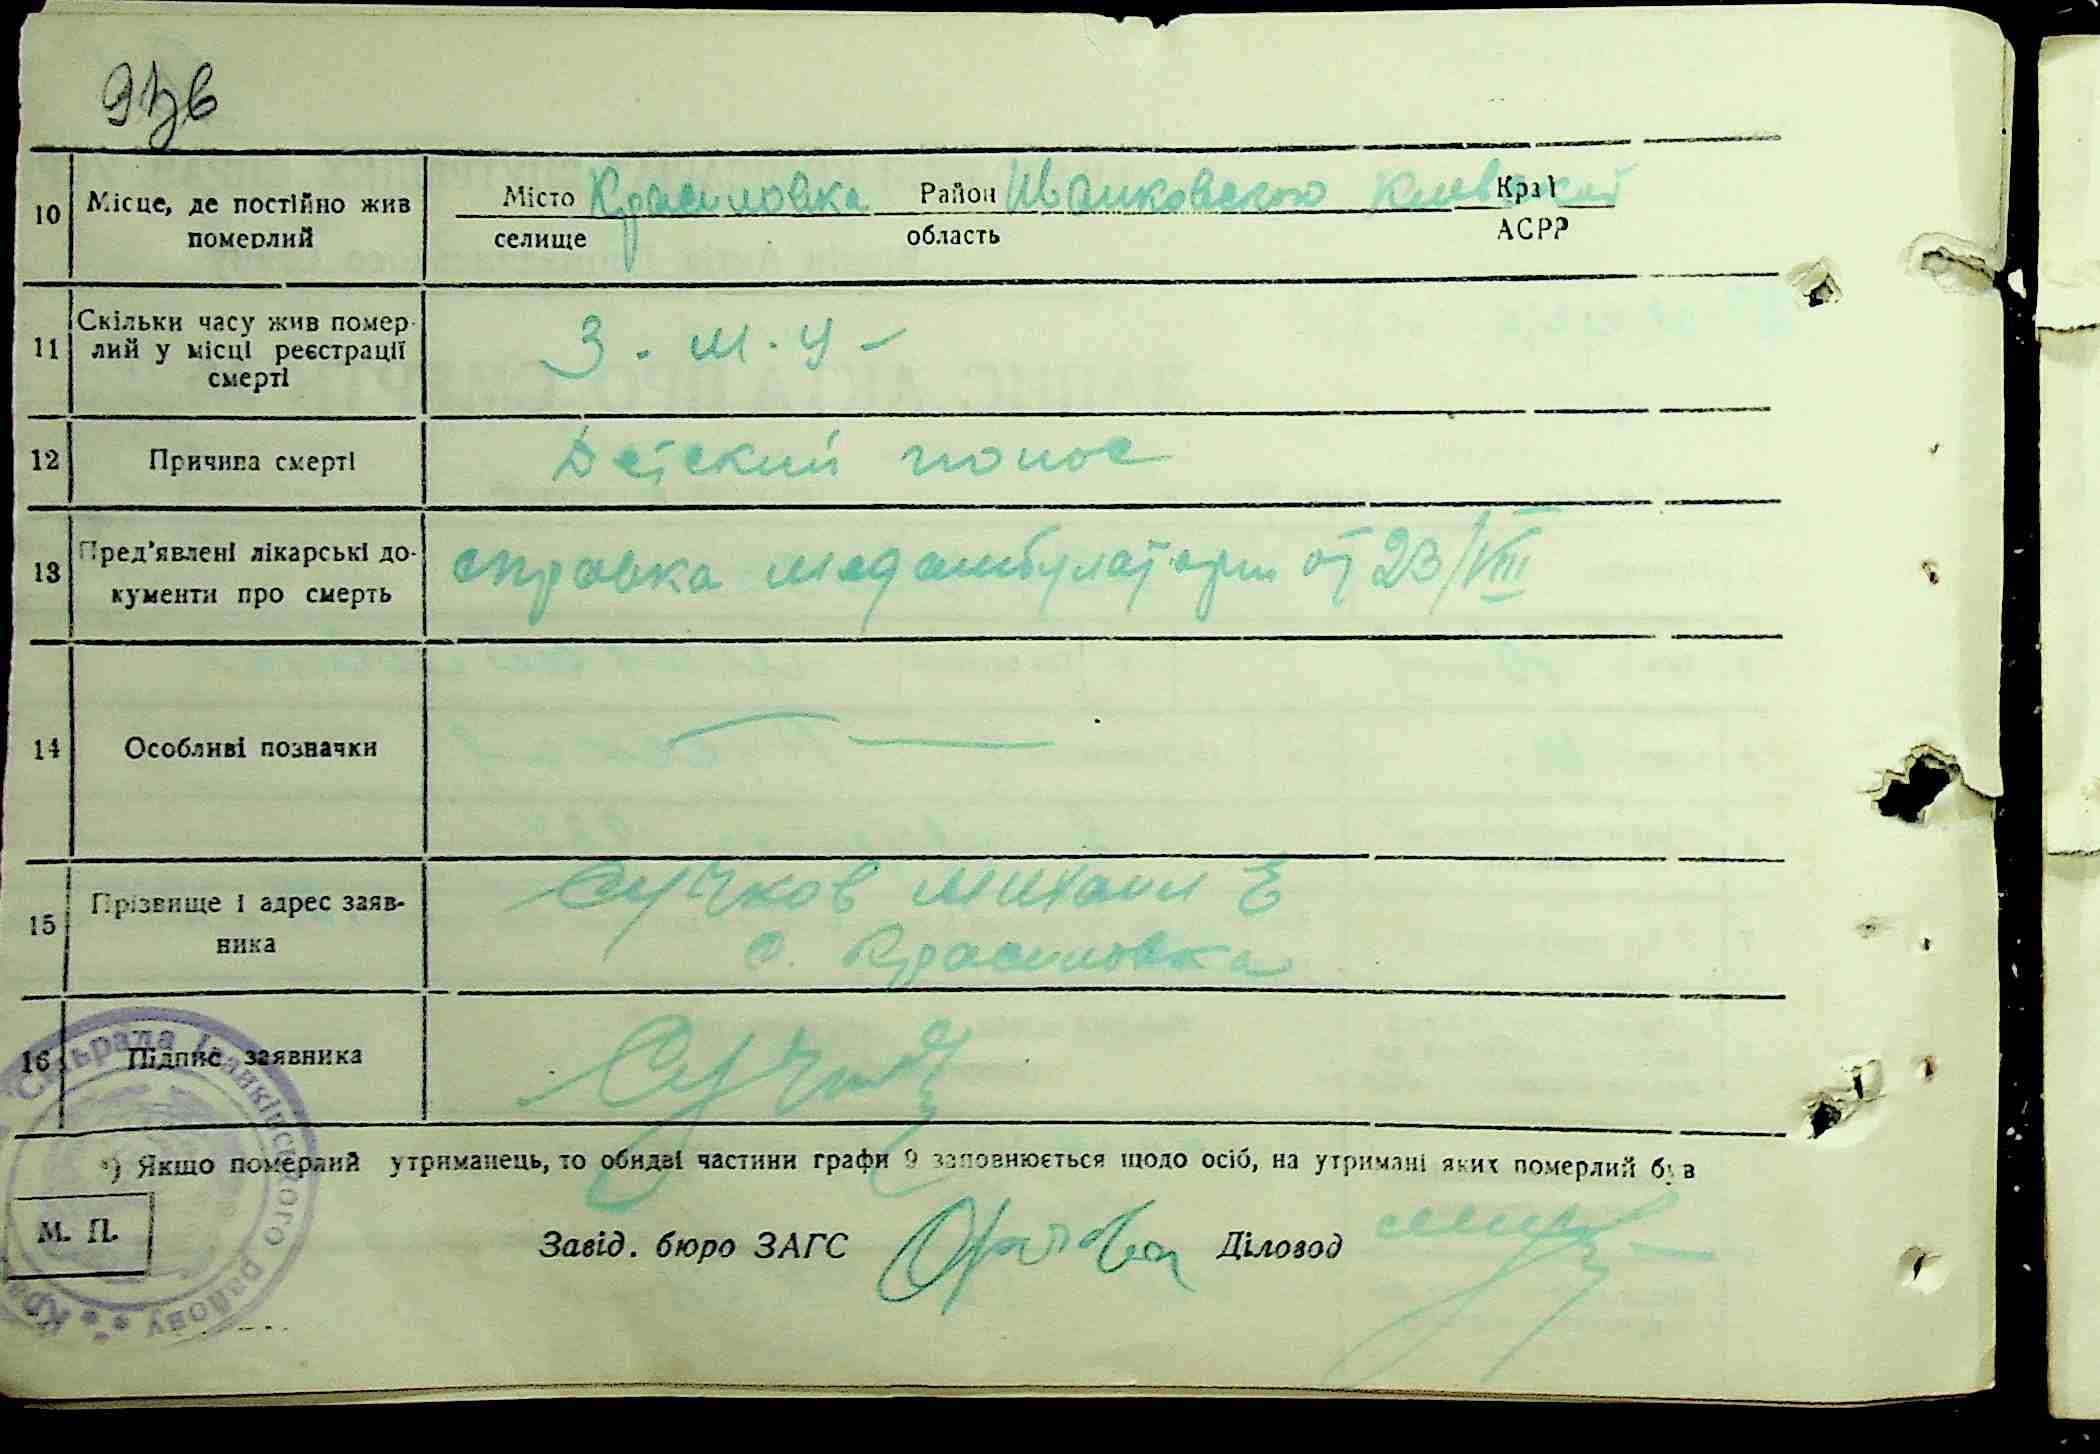 10 Місце, де постійно жив Місто Красиловка Район Иванковского Киевской Краї
померлий селище область АСРР
11 Скільки часу жив помер-
лий у місці реєстрації
смерті
3 - м.ч -
12 Причина смерті Детский понос
13 Пред'явлені лікарські до-
кументи про смерть
справка медамбулатории от 23/VIII
14 Особливі позначки
15 Прізвище і адрес заяв-
ника
Сучков Михаил Е
с. Красиловка
16 Підпис заявника
*) Якщо померлий утриманець, то обидві частини графи 9 заповнюється щодо осіб, на утримані яких померлий був
М. П.
Завід. бюро ЗАГС Діловод
Сільрада Іванківського району